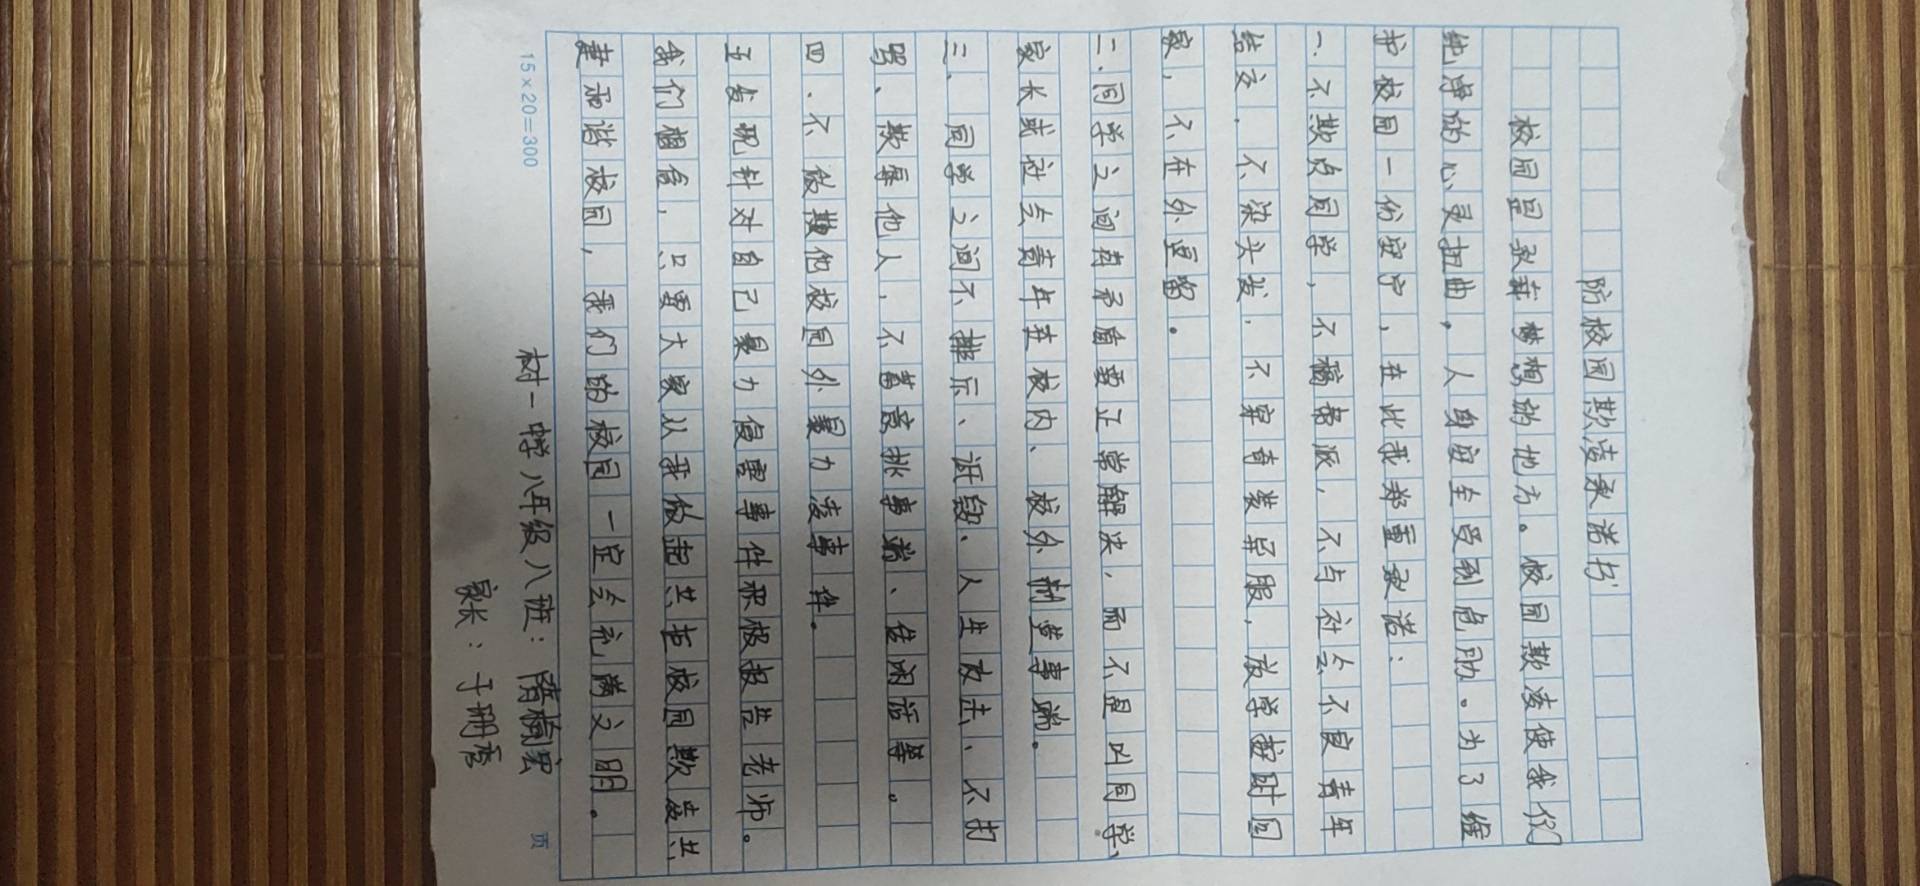 防校园欺凌承诺书
校园是承载梦想的地方。校园欺凌使我们
纯净的心灵扭曲，人身安全受到危肋。为了维
护校园一份安宁，在此我郑重承诺：
一、不欺负同学，不搞帮派，不与社会不良青年
结交，不染头发，不穿奇装异服，放学按时回
家，不在外逗留。
二、同学之间有矛盾要正常解决，而不是叫同学、
家长或社会青年在校内、校外制造事端。
三、同学之间不排示、诋毁、人生攻击、不打
骂、欺辱他人，不蓄意挑事端、传闲话等。
四、不做其他校园外暴力凌事件。
五发现针对自己暴力侵害事件积极报告老师。
我们相信，只要大家从我做起共拒校园欺凌共
建和谐校园，我们的校园一定会充满文明。
15×20=300 页
树一中学八年级八班：隋桢宏
家长：于珊湾